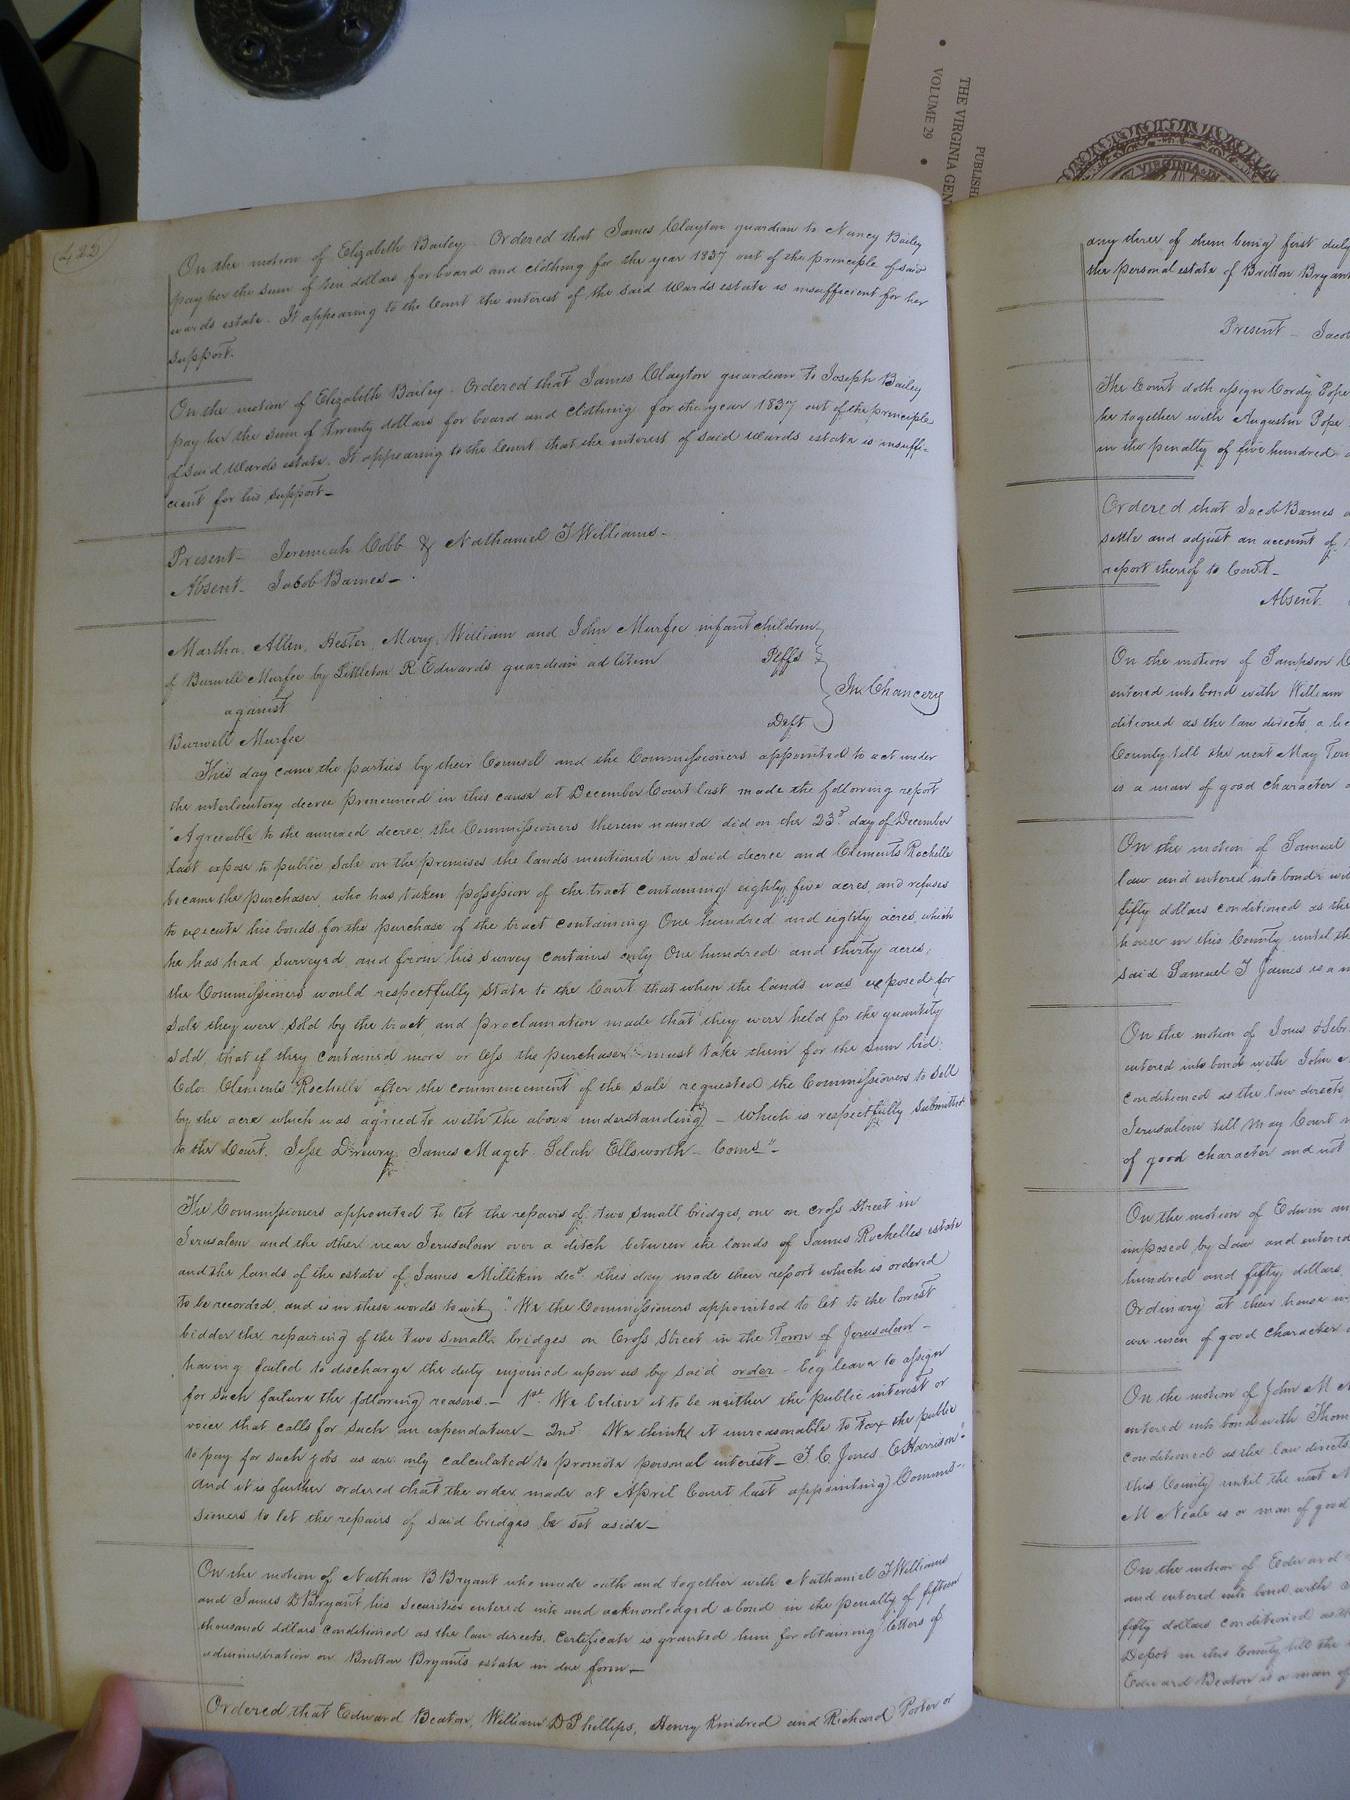 THE VIRGINIA GEN
VOLUME 29
PUBLISH
VIRGINIA
422
On the motion of Elizabeth Bailey. Ordered that James Clayton guardian to Nancy Bailey
pay her the sum of ten dollars for board and clothing for the year 1837 out of the principle of said
wards estate. It appearing to the Court the interest of the said wards estate is insufficient for her
support.
On the motion of Elizabeth Bailey. Ordered that James Clayton guardian to Joseph Bailey
pay her the sum of Twenty dollars for board and clothing for the year 1837 out of the principle
of said wards estate. It appearing to the Court that the interest of said wards estate is insuffi-
cient for his support-
Present- Jeremiah Cobb & Nathaniel T Williams-
Absent- Jacob Barnes-
Martha, Allen, Hester, Mary, William and John Murfee infant children
of Burwell Murfee by Littleton R Edwards guardian ad litem Plffs
against In Chancery
Burwell Murfee Deft
This day came the parties by their Counsel and the Commissioners appointed to act under
the interlocutory decree pronounced in this cause at December Court last made the following report
"Agreeable to the annexed decree, the Commissioners therein named did on the 23d day of December
last expose to public sale on the premises the lands mentioned in said decree and Clements Rochelle
became the purchaser, who has taken possession of the tract containing eighty five acres, and refuses
to execute his bonds for the purchase of the tract containing One hundred and eighty acres, which
he has had surveyed and from his survey contains only One hundred and thirty acres;
the Commissioners would respectfully state to the Court that when the lands was exposed for
sale they were sold by the tract and proclamation made that they were held for the quantity
sold, that if they contained more or less the purchaser must take them for the sum bid.
Colo. Clements Rochelle after the commencement of the sale requested the Commissioners to sell
by the acre which was agreed to with the above understanding - which is respectfully submitted
to the Court. Jesse Drewry, James Maget, Selah Ellsworth- Coms"-
The Commissioners appointed to let the repairs of two small bridges, one on Cross Street in
Jerusalem and the other near Jerusalem over a ditch between the lands of James Rochelles estate
and the lands of the estate of James Millikin decd. this day made their report which is ordered
to be recorded, and is in these words to wit, "We the Commissioners appointed to let to the lowest
bidder the repairing of the two small bridges on Cross Street in the Town of Jerusalem-
having failed to discharge the duty enjoined upon us by said order - beg leave to assign
for such failure the following reasons.- 1st. We believe it to be neither the public interest or
voice that calls for such an expendature- 2nd. We think it unreasonable to tax the public
to pay for such jobs as are only calculated to promote personal interest- T. C. Jones C Harrison"
And it is further ordered that the order made at April Court last appointing Commis-
sioners to let the repairs of said bridges be set aside-
On the motion of Nathan B Bryant who made oath and together with Nathaniel T Williams
and James D Bryant his securities entered into and acknowledged a bond in the penalty of fifteen
thousand dollars conditioned as the law directs. Certificate is granted him for obtaining letters of
administration on Britton Bryants estate in due form-
Ordered that Edward Beaton, William D Phillips, Henry Kindred and Richard Porter or
any three of them being first duly
the personal estate of Britton Bryant
Present- Jacob
The Court doth assign Cordy Pope
he together with Augustin Pope
in the penalty of five hundred
Ordered that Jacob Barnes
settle and adjust an account of
report thereof to Court-
Absent
On the motion of Sampson
entered into bond with William
ditioned as the law directs, a
County till the next May
is a man of good character
On the motion of Samuel
law and entered into bonds
fifty dollars conditioned as the
house in this County until the
said Samuel T James is a
On the motion of
entered into bond with John
conditioned as the law directs
Jerusalem till May Court
of good character and not
On the motion of Edwin
imposed by Law and entered
hundred and fifty dollars,
Ordinary at their house in
are men of good character
On the motion of John M
entered into bond with Thom
conditioned as the law directs
this County until the next
M Neale is a man of good
On the motion of Edward
and entered into bond with
fifty dollars conditioned as the
Depot in this County till the
Edward Beaton is a man of